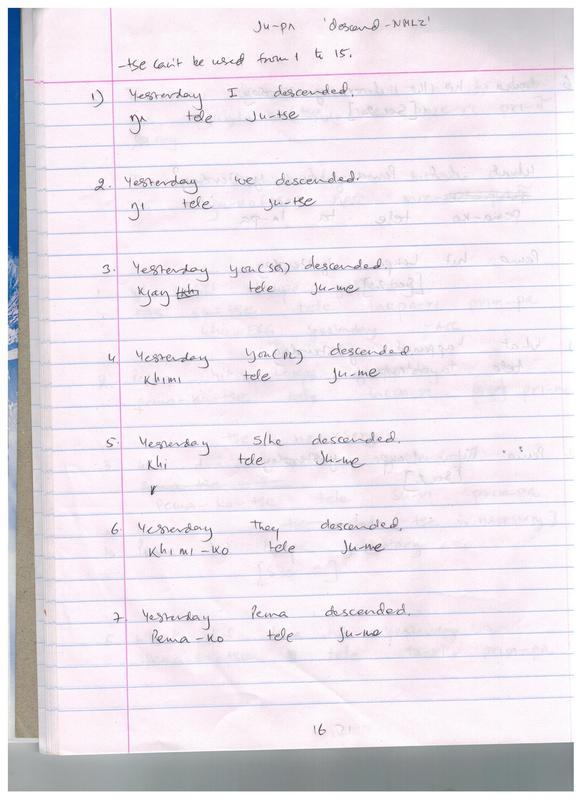 Ju-pʌ 'descend-NMLZ'
-tse can't be used from 1 to 15.
1) Yesterday I descended.
ŋʌ tele Ju-tse
2. Yesterday we descended.
ŋi tele Ju-tse
3. Yesterday you(SG) descended.
tele Ju-me
4. Yesterday you(PL) descended
Khimi tele Ju-me
5. Yesterday s/he descended.
Khi tele Ju-me
6. Yesterday they descended.
Khimi-ko tele Ju-me
7. Yesterday Pema descended.
Pema-ko tele Ju-me
16